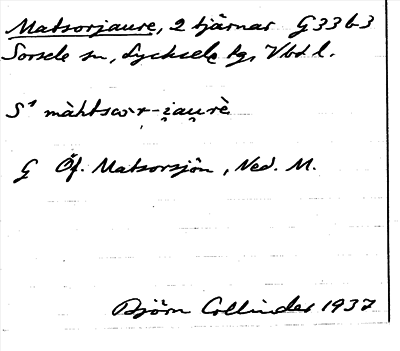 Matsorjaure, 2 tjärnar G33b3
Sorsele sn, Lycksele tg, Vbd l.
S¹ màhtscor-i̯au̯rè
G Öf. Matsorsjön, Ned. M.
Björn Collinder 1937